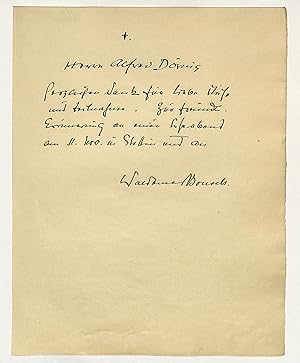 +.
Herrn Alfred Dörnig
herzlichen Dank für liebe Grüße
und Teilnahme. Zur freundl.
Erinnerung an einen Leseabend
am 11. Nov. in Stettin und an
Waldemar Bonsels.